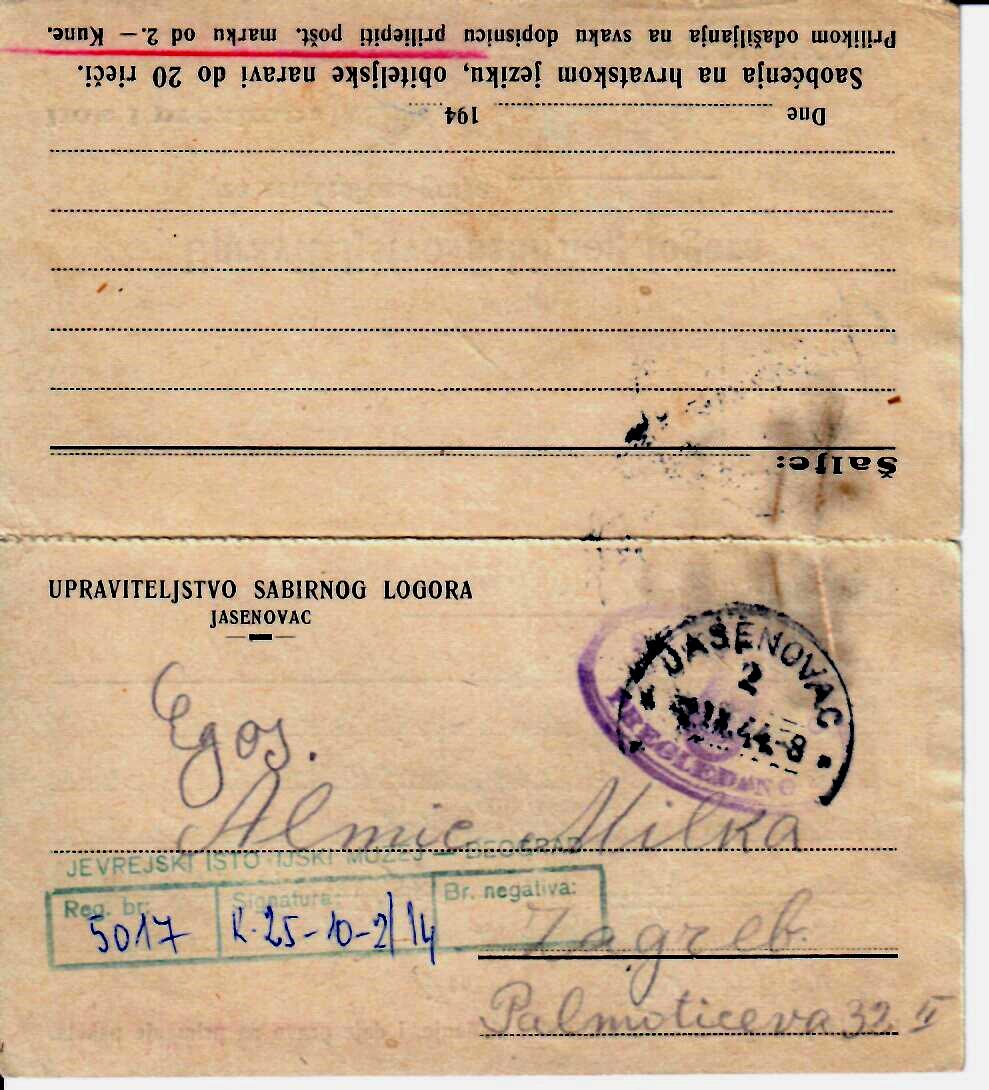 Prilikom odašiljanja na svaku dopisnicu priliepiti pošt. marku od 2.— Kune.
Saobćenja na hrvatskom jeziku, obiteljske naravi do 20 rieči.
Dne 194
Šalje:
UPRAVITELJSTVO SABIRNOG LOGORA
JASENOVAC
JASENOVAC
2
IX. 44-8
PREGLEDANO
Egos.
Almic Milka
JEVREJSKI ISTORIJSKI MUZEJ — BEOGRAD
Reg. br: Signatura: Br. negativa:
5017 K. 25-10-2/14
Zagreb.
Palmoticeva 32 II